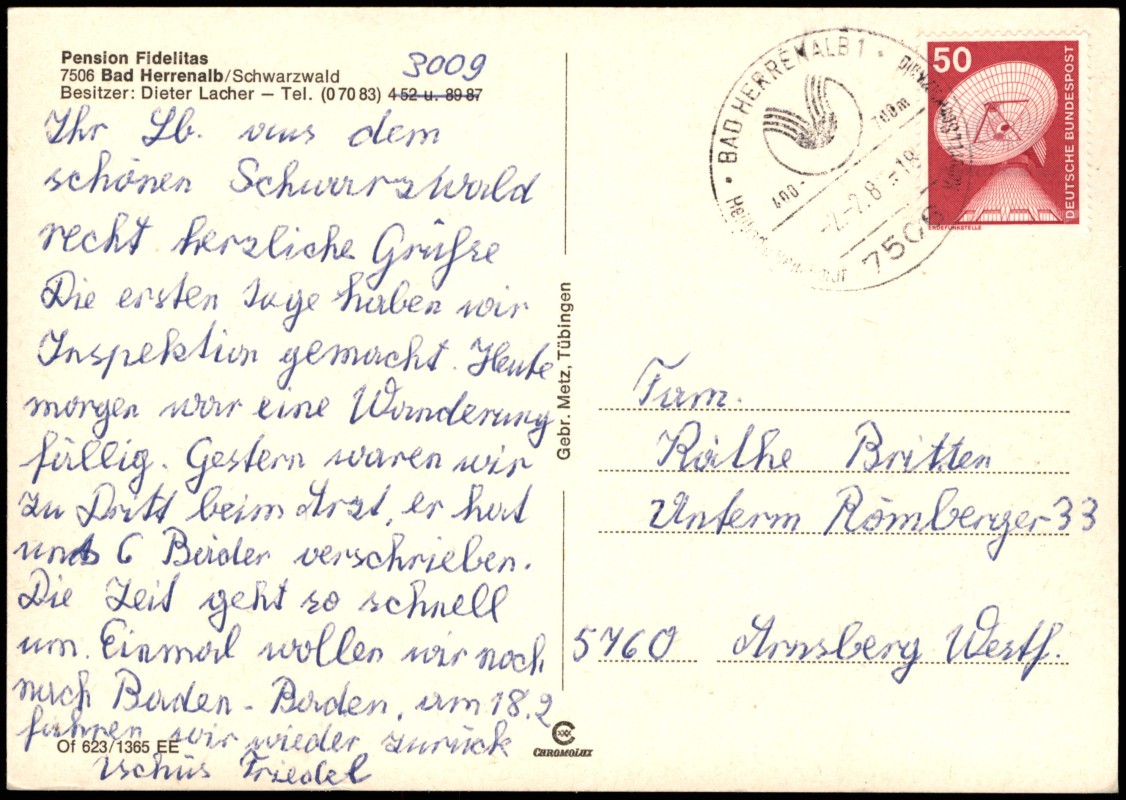 Pension Fidelitas
7506 Bad Herrenalb/Schwarzwald
Besitzer: Dieter Lacher – Tel. (0 70 83) 4 52 u. 89 87
3009
Ihr Lb. aus dem
schönen Schwarzwald
recht herzliche Grüße
Die ersten Tage haben wir
Inspektion gemacht. Heute
morgen war eine Wanderung
fällig. Gestern waren wir
zu Dritt beim Arzt, er hat
uns 6 Bäder verschrieben.
Die Zeit geht so schnell
um. Einmal wollen wir noch
nach Baden-Baden, am 18.2
fahren wir wieder zurück
Tschüs Friedel
Of 623/1365 EE
Gebr. Metz, Tübingen
CHROMOLUX
BAD HERRENALB 1
400-
700m
7506
50
DEUTSCHE BUNDESPOST
ERDEFUNKSTELLE
Fam.
Käthe Britten
Unterm Römberger 33
5760 Arnsberg Westf.